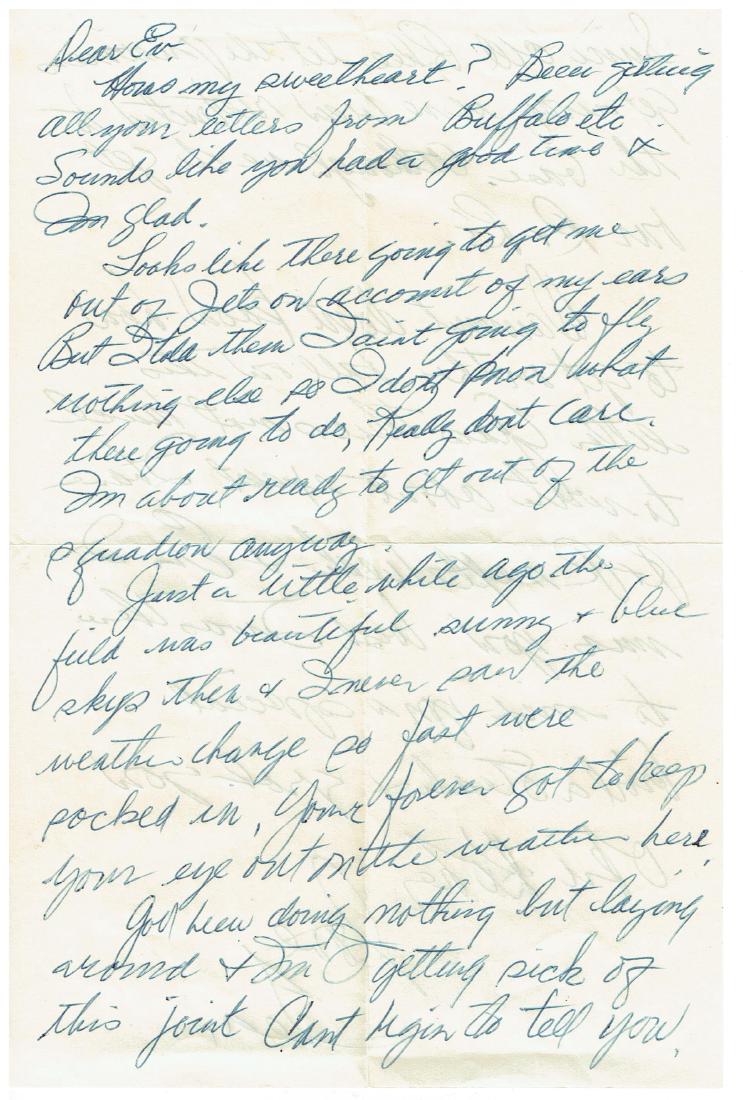 Dear Ev.
Hows my sweetheart? Been getting
all your letters from Buffalo etc
Sounds like you had a good time &
Im glad.
Looks like there going to get me
out of Jets on account of my ears
But I told them I aint going to fly
nothing else so I dont know what
there going to do, Really dont care.
Im about ready to get out of the
squadron anyway.
Just a little while ago the
field was beautiful sunny & blue
skys then & I never saw the
weather change so fast were
socked in. Your forever got to keep
your eye out on the weather here.
God been doing nothing but laying
around & Im getting sick of
this joint Cant begin to tell you.